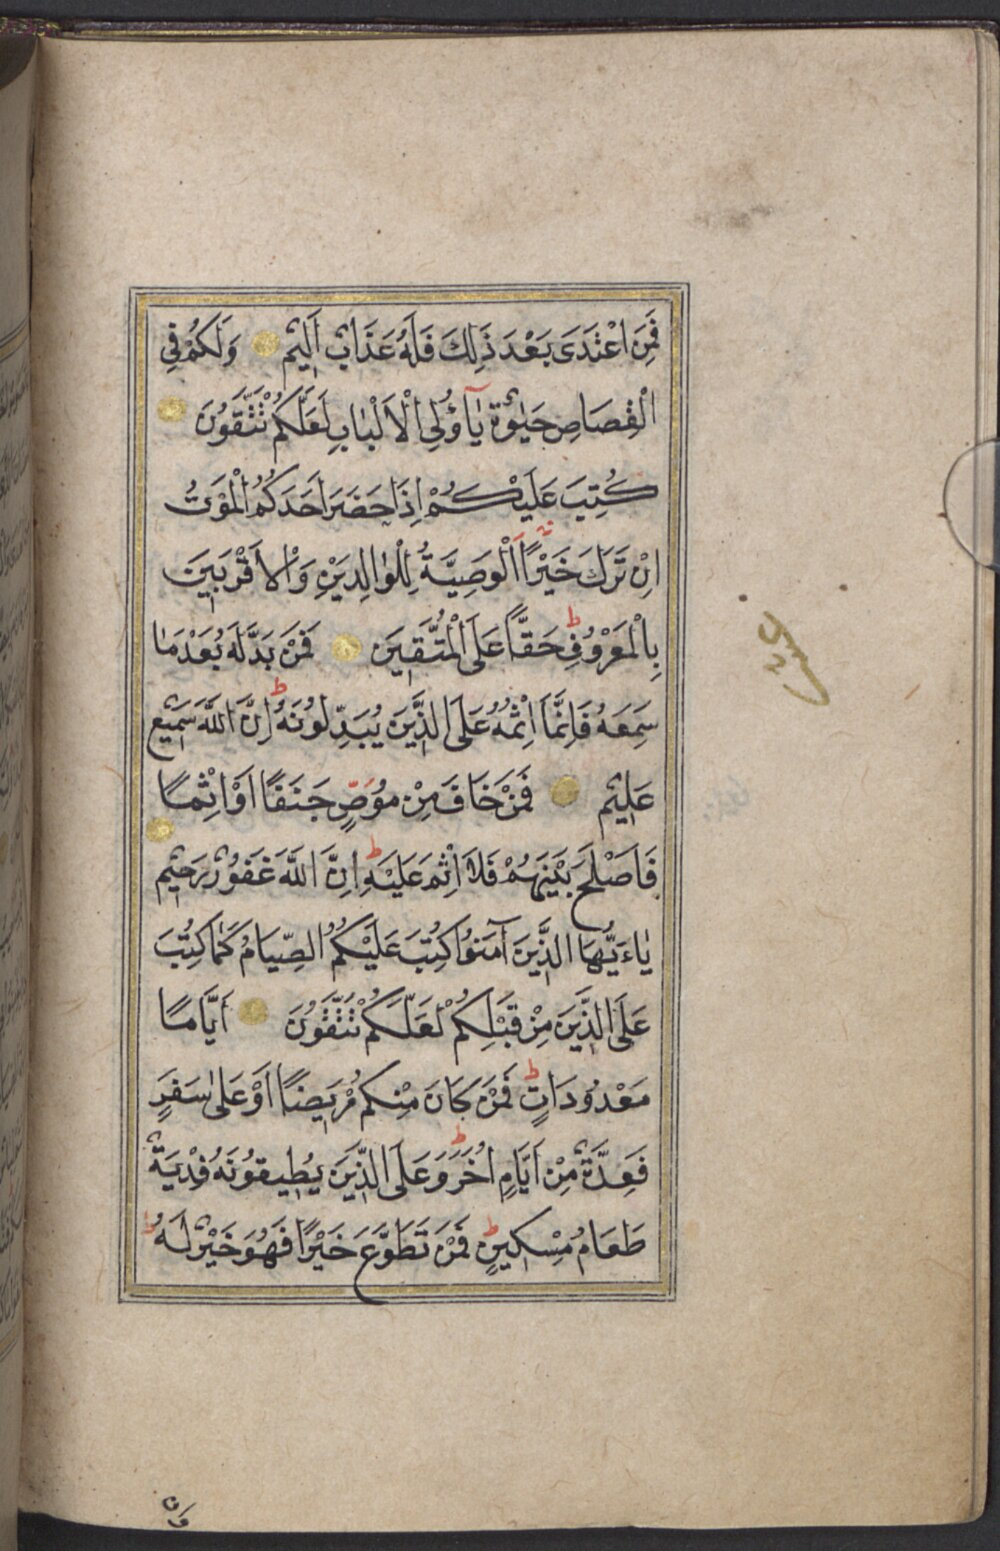 فَمَنِ اعْتَدَى بَعْدَ ذٰلِكَ فَلَهُ عَذَابٌ اَلِيمٌ وَلَكُمْ فِي
الْقِصَاصِ حَيٰوةٌ يَآ اُولِي الْاَلْبَابِ لَعَلَّكُمْ تَتَّقُونَ
كُتِبَ عَلَيْكُمْ اِذَا حَضَرَ اَحَدَكُمُ الْمَوْتُ
اِنْ تَرَكَ خَيْرًا اَلْوَصِيَّةُ لِلْوَالِدَيْنِ وَالْاَقْرَبِينَ
بِالْمَعْرُوفِ ط حَقًّا عَلَى الْمُتَّقِينَ فَمَنْ بَدَّلَهُ بَعْدَمَا
سَمِعَهُ فَاِنَّمَا اِثْمُهُ عَلَى الَّذِينَ يُبَدِّلُونَهُ ط اِنَّ اللَّهَ سَمِيعٌ
عَلِيمٌ فَمَنْ خَافَ مِنْ مُوَصٍّ جَنَفًا اَوْ اِثْمًا
فَاَصْلَحَ بَيْنَهُمْ فَلَا اِثْمَ عَلَيْهِ ط اِنَّ اللَّهَ غَفُورٌ رَحِيمٌ
يٰاءَيُّهَا الَّذِينَ آمَنُوا كُتِبَ عَلَيْكُمُ الصِّيَامُ كَمَا كُتِبَ
عَلَى الَّذِينَ مِنْ قَبْلِكُمْ لَعَلَّكُمْ تَتَّقُونَ اَيَّامًا
مَعْدُودَاتٍ ط فَمَنْ كَانَ مِنْكُمْ مَرِيضًا اَوْ عَلٰى سَفَرٍ
فَعِدَّةٌ مِنْ اَيَّامٍ اُخَرَ ط وَعَلَى الَّذِينَ يُطِيقُونَهُ فِدْيَةٌ
طَعَامُ مِسْكِينٍ ط فَمَنْ تَطَوَّعَ خَيْرًا فَهُوَ خَيْرٌ لَهُ ط